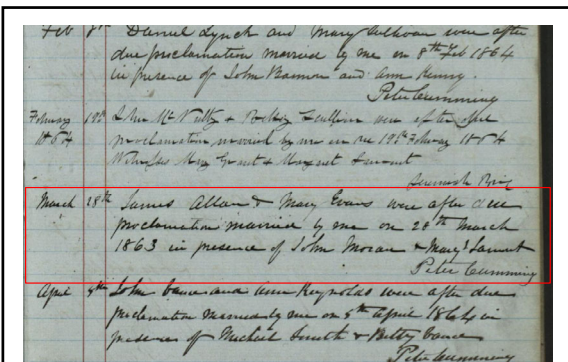 Feb 8th Daniel Lynch and Mary were after
due proclamation married by me on 8th Feb 1864
in presence of John and Ann Henry.
Peter Cumming
February 19th John Mc Nulty & were after due
1864 proclamation married by me on the 19th February 1864
Witnesses Mary Grant & Margaret
Jeremiah
March 28th James Allan & Mary Evans were after due
proclamation married by me on 28th March
1863 in presence of John Moran & Mary
Peter Cumming
April 5th John and Ann Reynolds were after due
proclamation married by me on 5th April 1864 in
presence of Michael Smith & Betty
Peter Cumming